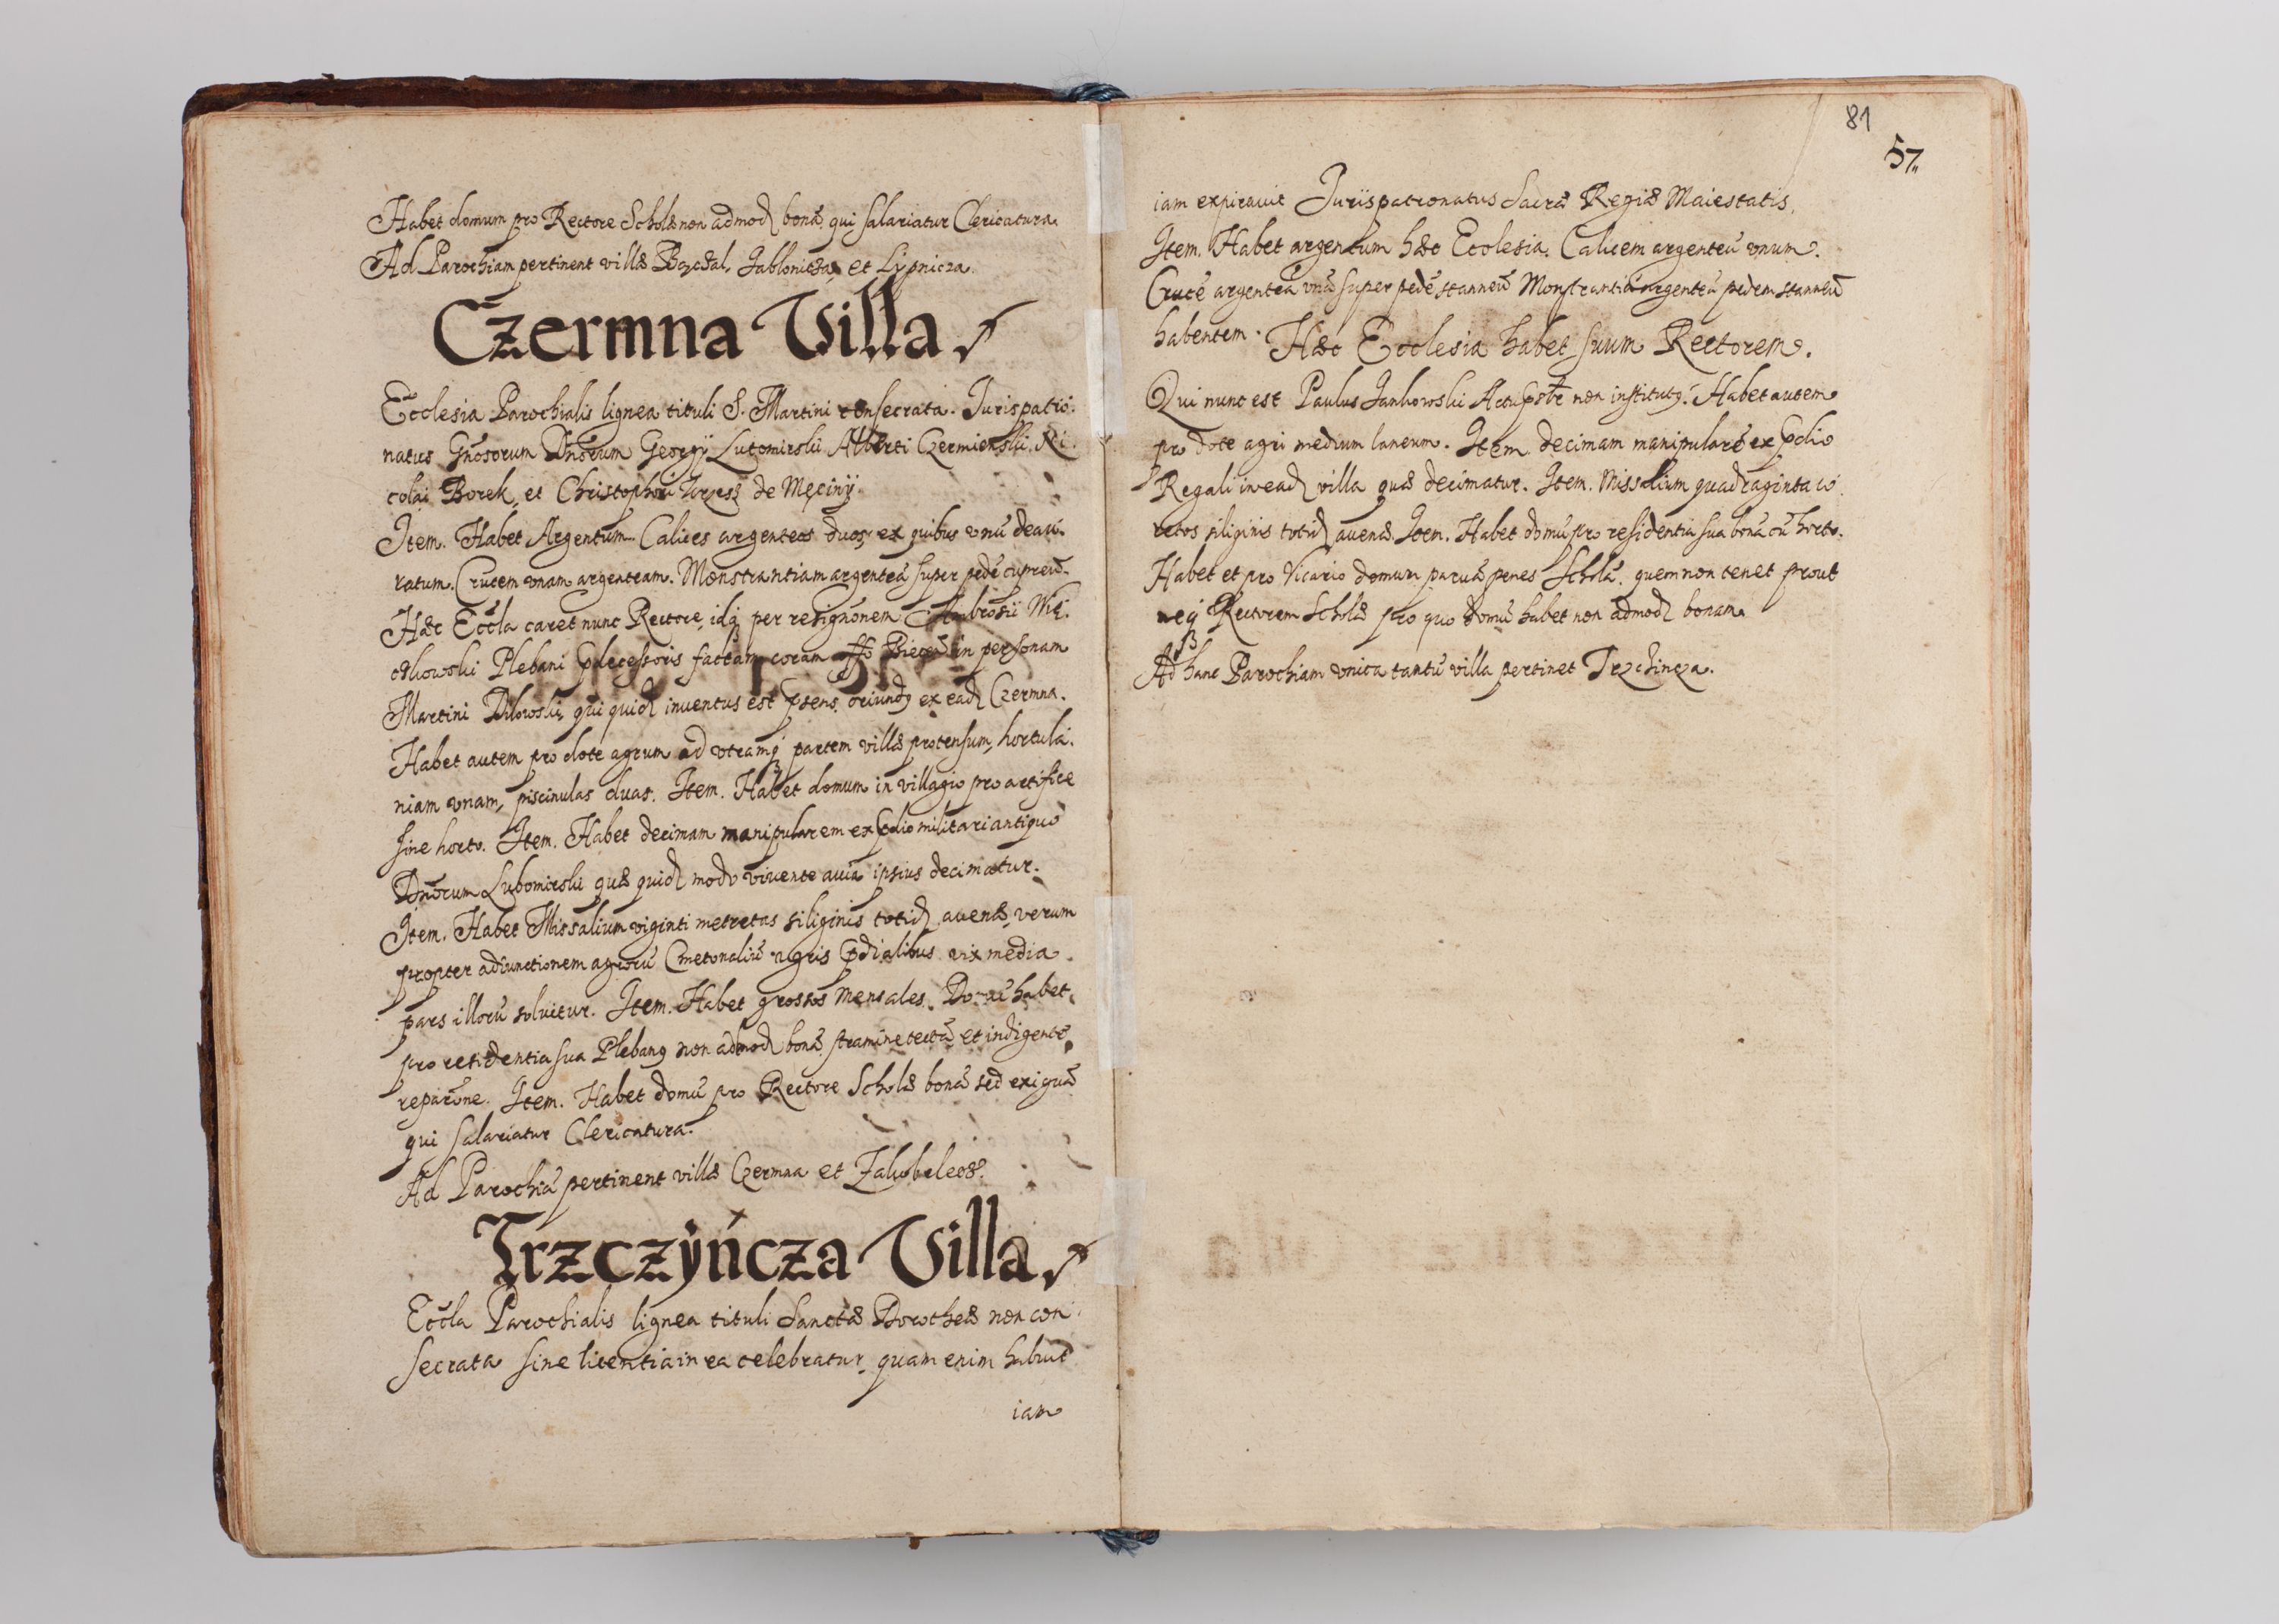 Habet domum pro Rectore Scholæ non admod bonā qui salariatur Clericatura.
Ad Parochiam pertinent villæ et Lypnicza.
Czermna Villa
Ecclesia Parochialis lignea tituli S. Martini consecrata. Iurispatro:
natus Gnosorum Dnorum Georgÿ Lutomirski Alberti Czermienski Ni:
colai Borek, et Christophori de Męcinÿ.
Item. Habet Argentum. Calices argenteos duos, ex quibus unū deau:
ratum. Crucem vnam argenteam. Monstrantiam argenteā super pedē cupreū.
Hæc Eccla caret nunc Rectore, idq per resignonem Ambrosii
Plebani factam coram in personam
Martini qui quid inventus est oriund9 ex ead Czermna.
Habet autem pro dote agrum ad vtramq partem villæ protensum, hortula:
niam vnam, piscinulas duas. Item. Habet domum in villagio pro artifice
sine horto. Item. Habet decimam manipularem ex militari antiquo
Dnorum Lubomirski quæ quid modo vivente avia ipsius decimatur.
Item. Habet Missalium viginti metretas siliginis totid avenæ, verum
propter adiunctionem agrorū Cmetonaliū agris vix media
pars illorū solvitur. Item. Habet grossos mensales. Domū habet
pro residentia sua Pleban9 non admod bonā stramine tectā et indigentē
reparōne. Item. Habet domū pro Rectore Scholæ bonā sed exiguā
qui salariatur Clericatura.
Ad Parochiā pertinent villæ Czermna et
Trzczÿńcza Villa
Eccla Parochialis lignea tituli Sanctæ Dorotheæ non con
secrata sine licentia in ea celebratur, quam enim habuit
iam
81
57
iam expiravit Jurispatronatus Sacræ Regiæ Maiestatis.
Item. Habet argentum hæc Ecclesia. Calicem argenteū vnum.
Crucē argenteā vnā super pedē stanneū Monstrantiā argenteā pedem stanneū
habentem. Hæc Ecclesia habet suum Rectorem.
Qui nunc est Paulus Jankowski non institut9. Habet autem
pro dote agri medium laneum. Item. decimam manipularē ex
Regali in ead villa quæ decimatur. Item. Missalium quadraginta co:
retos siliginis totid avenæ. Item. Habet domū pro residentia sua bonā cū horto.
Habet et pro Vicario domum parvā penes Scholā, quem non tenet prout
neq Rectorem Scholæ pro quo domū habet non admod bonam.
Ad hanc Parochiam vnica tantū villa pertinet Trzchincza.